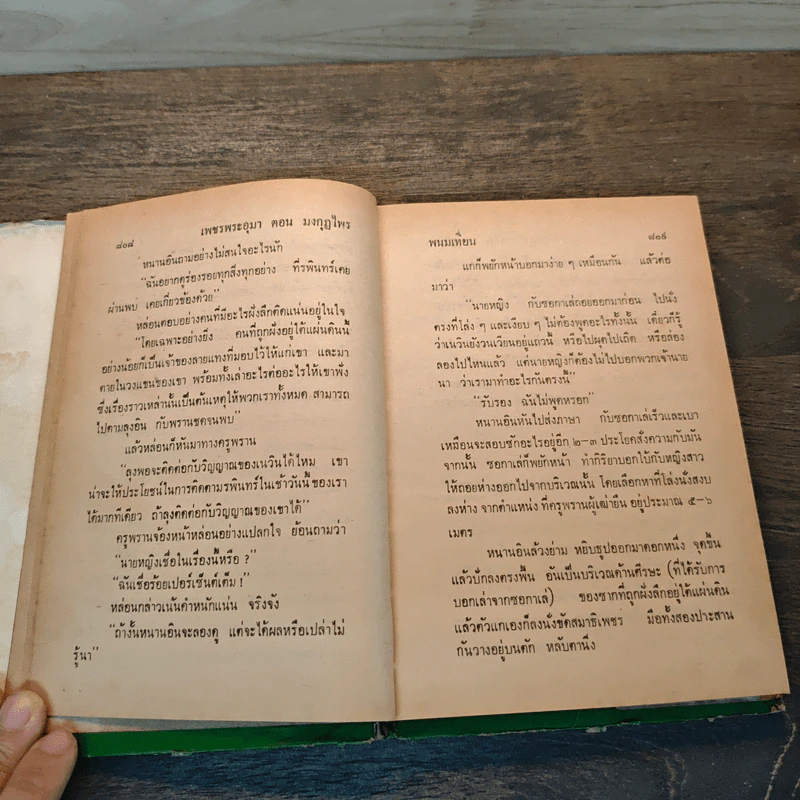 ๘๐๘
เพชรพระอุมา ตอน มงกุฎไพร
หนานอินถามอย่างไม่สนใจอะไรนัก
“ฉันอยากดูร่องรอยทุกสิ่งทุกอย่าง ที่รพินทร์เคย
ผ่านพบ เคยเกี่ยวข้องด้วย”
หล่อนตอบอย่างคนที่มีอะไรฝังลึกติดแน่นอยู่ในใจ
“โดยเฉพาะอย่างยิ่ง คนที่ถูกฝังอยู่ใต้แผ่นดินนี้
อย่างน้อยก็เป็นเจ้าของลายแทงที่มอบไว้ให้แก่เขา และมา
ตายในวงแขนของเขา พร้อมทั้งเล่าอะไรต่ออะไรให้เขาฟัง
ซึ่งเรื่องราวเหล่านั้นเป็นต้นเหตุให้พวกเราทั้งหมด สามารถ
ไปตามลุงอิน กับพรานชดจนพบ”
แล้วหล่อนก็หันมาทางครูพราน
“ลุงพอจะติดต่อกับวิญญาณของเนวินได้ไหม เขา
น่าจะให้ประโยชน์ในการติดตามรพินทร์ในเช้าวันนี้ ของเรา
ได้มากทีเดียว ถ้าลุงติดต่อกับวิญญาณของเขาได้”
ครูพรานจ้องหน้าหล่อนอย่างแปลกใจ ย้อนถามว่า
“นายหญิงเชื่อในเรื่องนี้หรือ ?”
“ฉันเชื่อร้อยเปอร์เซ็นต์เต็ม !”
หล่อนกล่าวเน้นคำหนักแน่น จริงจัง
“ถ้างั้นหนานอินจะลองดู แต่จะได้ผลหรือเปล่าไม่
รู้นา”
พนมเทียน
๘๐๙
แกก็พยักหน้าบอกมาง่าย ๆ เหมือนกัน แล้วต่อ
มาว่า
“นายหญิง กับซอกาเล่ถอยออกมาก่อน ไปนั่ง
ตรงที่โล่ง ๆ และเงียบ ๆ ไม่ต้องพูดอะไรทั้งนั้น เดี๋ยวก็รู้
ว่าเนวินยังวนเวียนอยู่แถวนี้ หรือไปผุดไปเกิด หรือล่อง
ลอยไปไหนแล้ว แต่นายหญิงก็ต้องไม่ไปบอกพวกเจ้านาย
นา ว่าเรามาทำอะไรกันตรงนี้”
“รับรอง ฉันไม่พูดหรอก”
หนานอินหันไปส่งภาษา กับซอกาเล่เร็วและเบา
เหมือนจะสอบซักอะไรอยู่อีก ๒–๓ ประโยคสั่งความกับมัน
จากนั้น ซอกาเล่ก็พยักหน้า ทำกิริยาบอกใบ้กับหญิงสาว
ให้ถอยห่างออกไปจากบริเวณนั้น โดยเลือกหาที่โล่งนั่งสงบ
ลงห่าง จากตำแหน่ง ที่ครูพรานผู้เฒ่ายืน อยู่ประมาณ ๕–๖
เมตร
หนานอินล้วงย่าม หยิบธูปออกมาดอกหนึ่ง จุดขึ้น
แล้วปักลงตรงพื้น อันเป็นบริเวณด้านศีรษะ (ที่ได้รับการ
บอกเล่าจากซอกาเล่) ของซากที่ถูกฝังลึกอยู่ใต้แผ่นดิน
แล้วตัวแกเองก็ลงนั่งขัดสมาธิเพชร มือทั้งสองประสาน
กันวางอยู่บนตัก หลับตานิ่ง